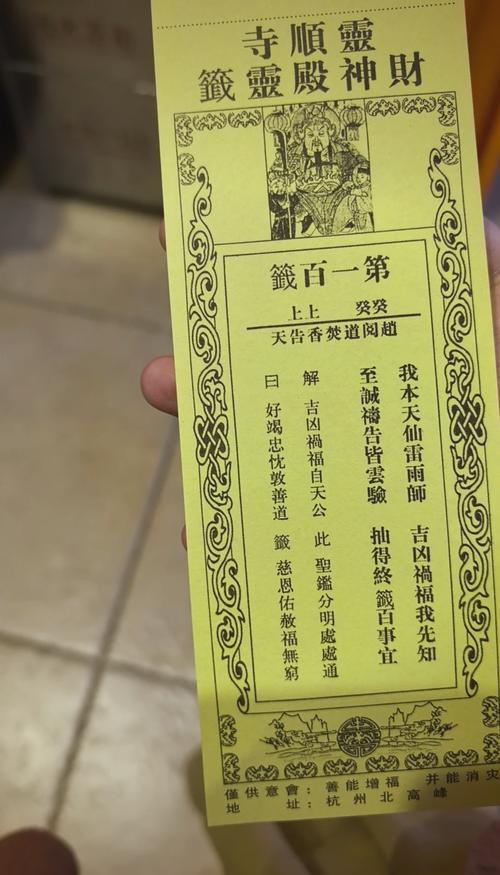 靈順寺
財神殿靈籤
第一百籤
癸癸 上上
趙閱道焚香告天
我本天仙雷雨師 吉凶禍福我先知
至誠禱告皆雲驗 抽得終籤百事宜
解 吉凶禍福自天公 此 聖鑑分明處處通
曰 好竭忠忱敦善道 籤 慈恩佑赦福無窮
僅供意會：善能增福 并能消灾
地址：杭州北高峰